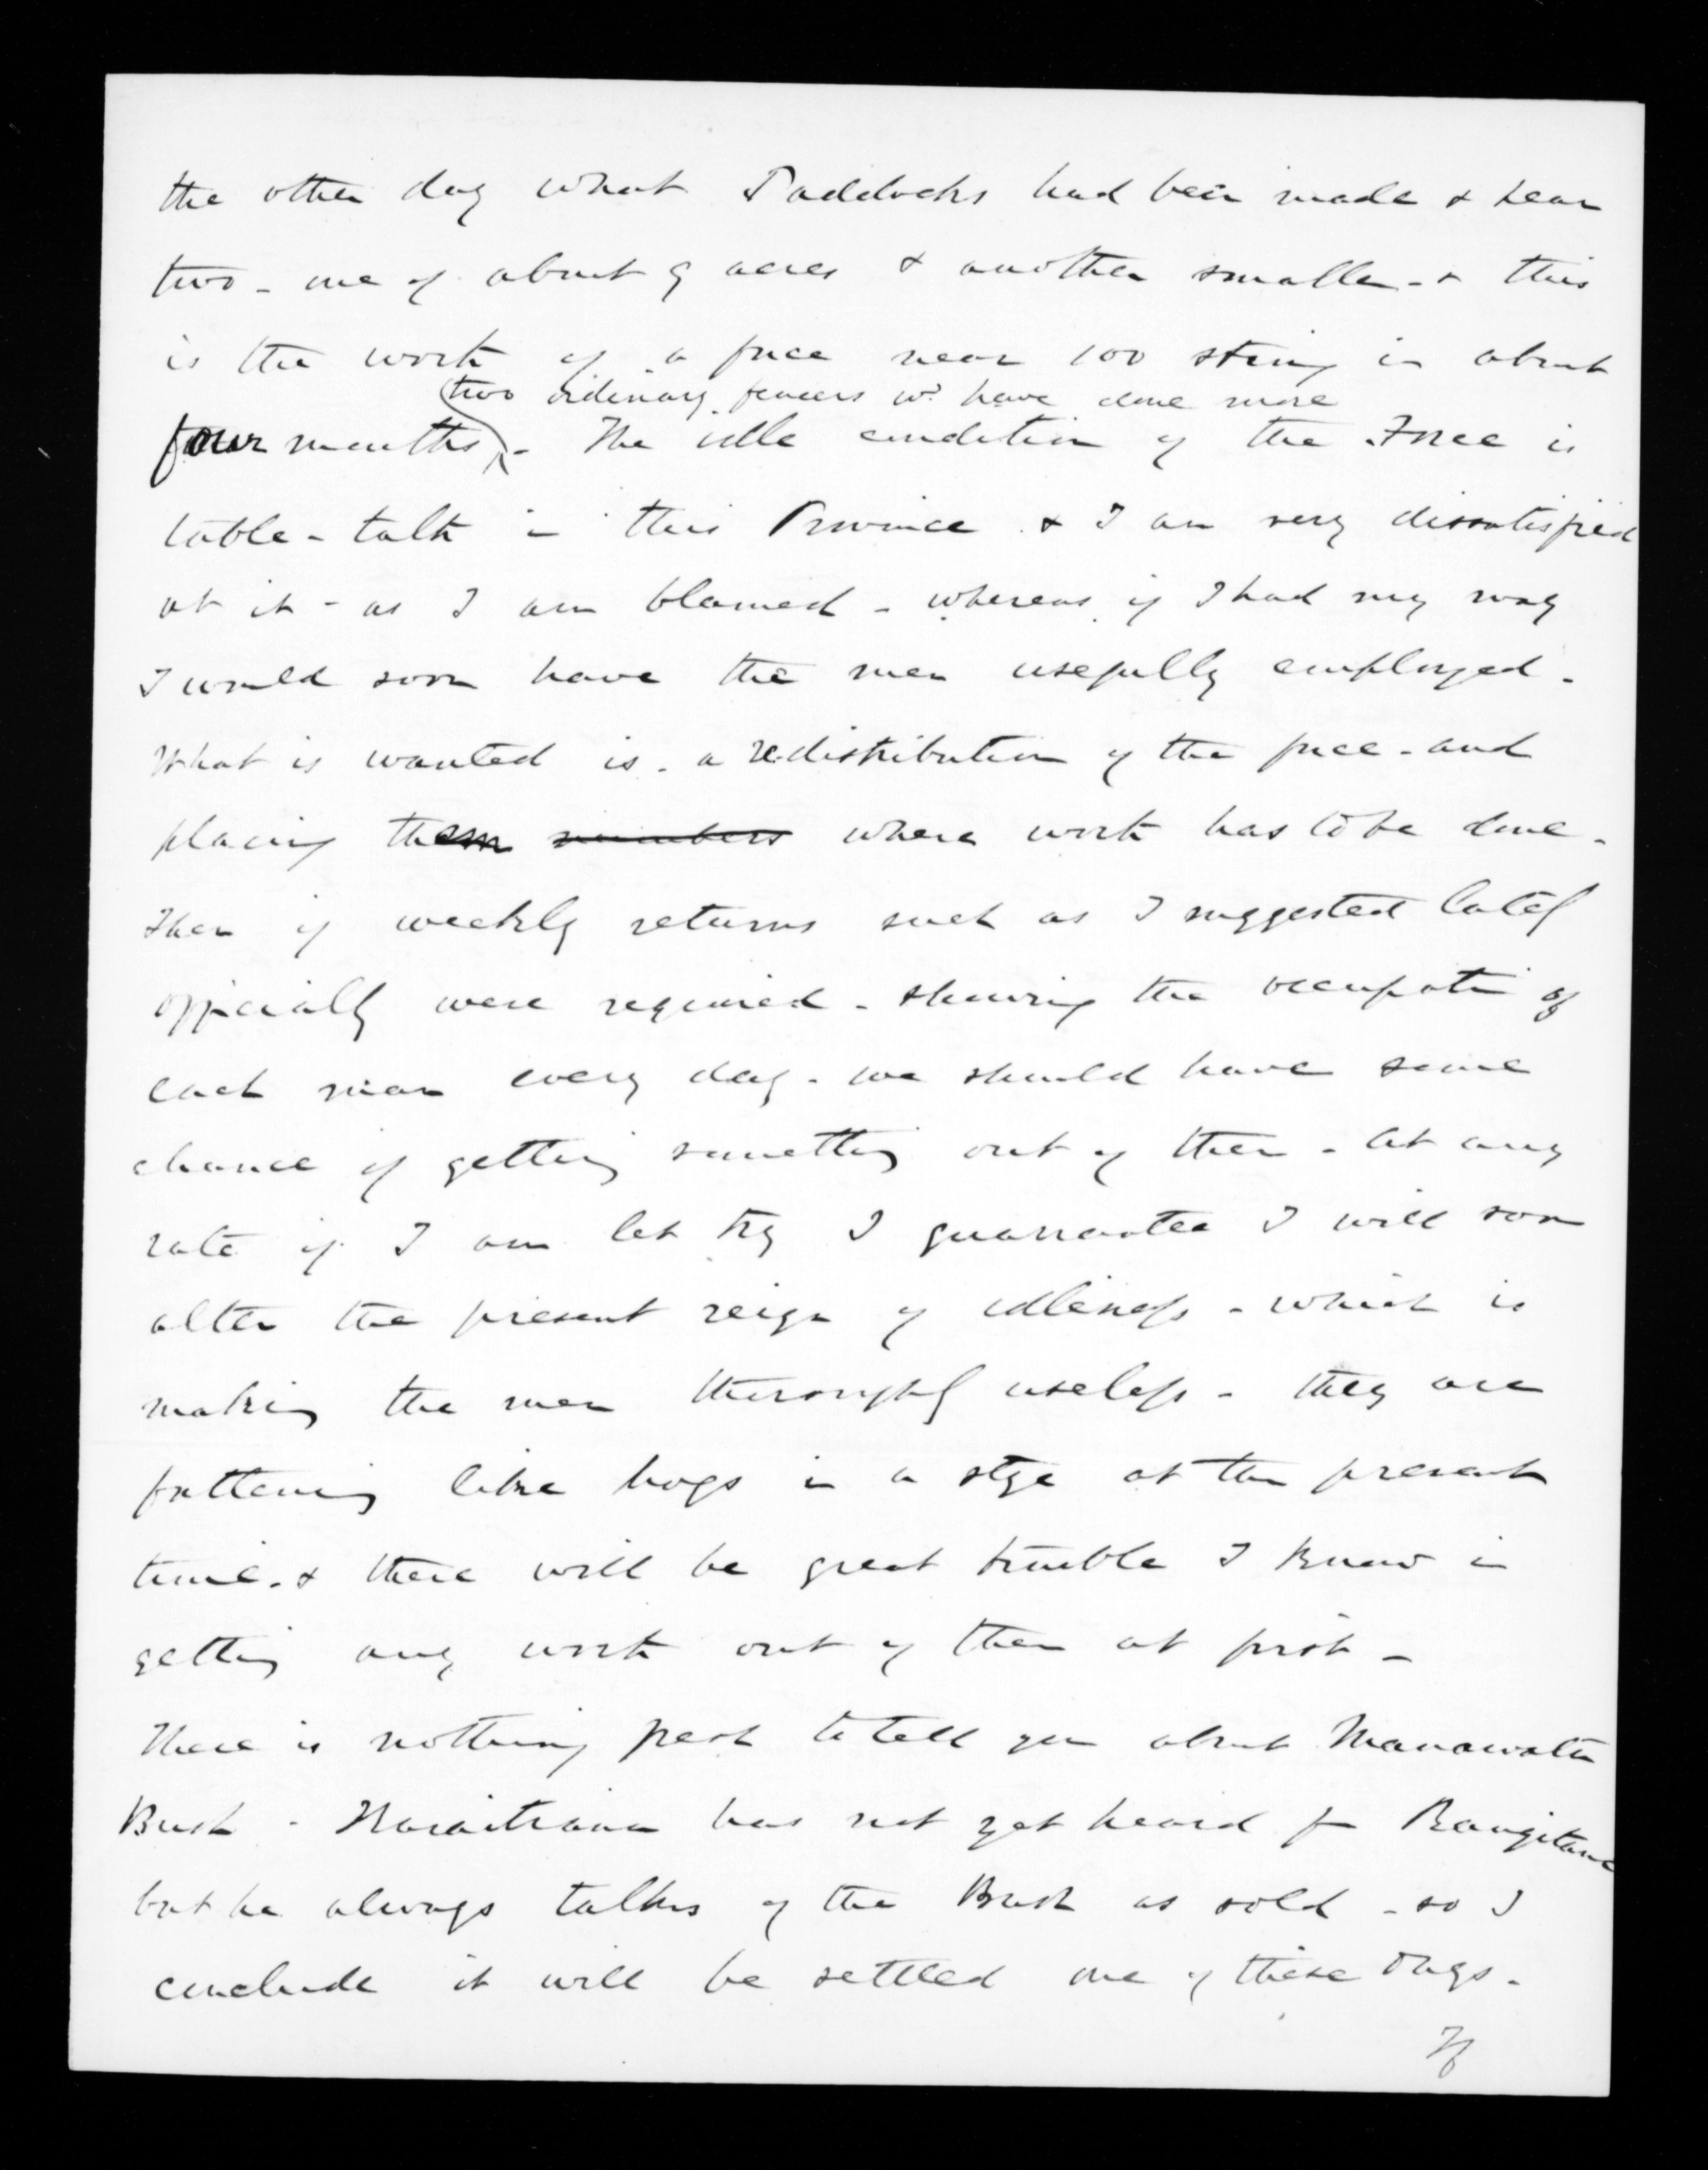 the other day what Paddocks had been made & hear
two - one of about 9 acres & another smaller - & this
is the work of a force near 100 strong in about
(two ordinary fencers wd. have done more
four months) - The idle condition of the Force is
table-talk in this Province & I am very dissatisfied
at it - as I am blamed - whereas if I had my way
I would soon have the men usefully employed -
What is wanted is - a redistribution of the force - and
placing them numbers where work has to be done -
Then if weekly returns such as I suggested lately
officially were required - shewing the occupatn of
each man every day - we should have some
chance of getting something out of them - At any
rate if I am let try I guarrantee I will soon
alter the present reign of idleness - which is
making the men thoroughly useless - they are
fattening like hogs in a stye at the present
time - & there will be great trouble I know in
getting any work out of them at first -
There is nothing fresh to tell you about Manawatu
Bush - Huraitiana has not yet heard fm Rangitane
but he always talks of the Bush as sold - so I
conclude it will be settled one of these days -
If